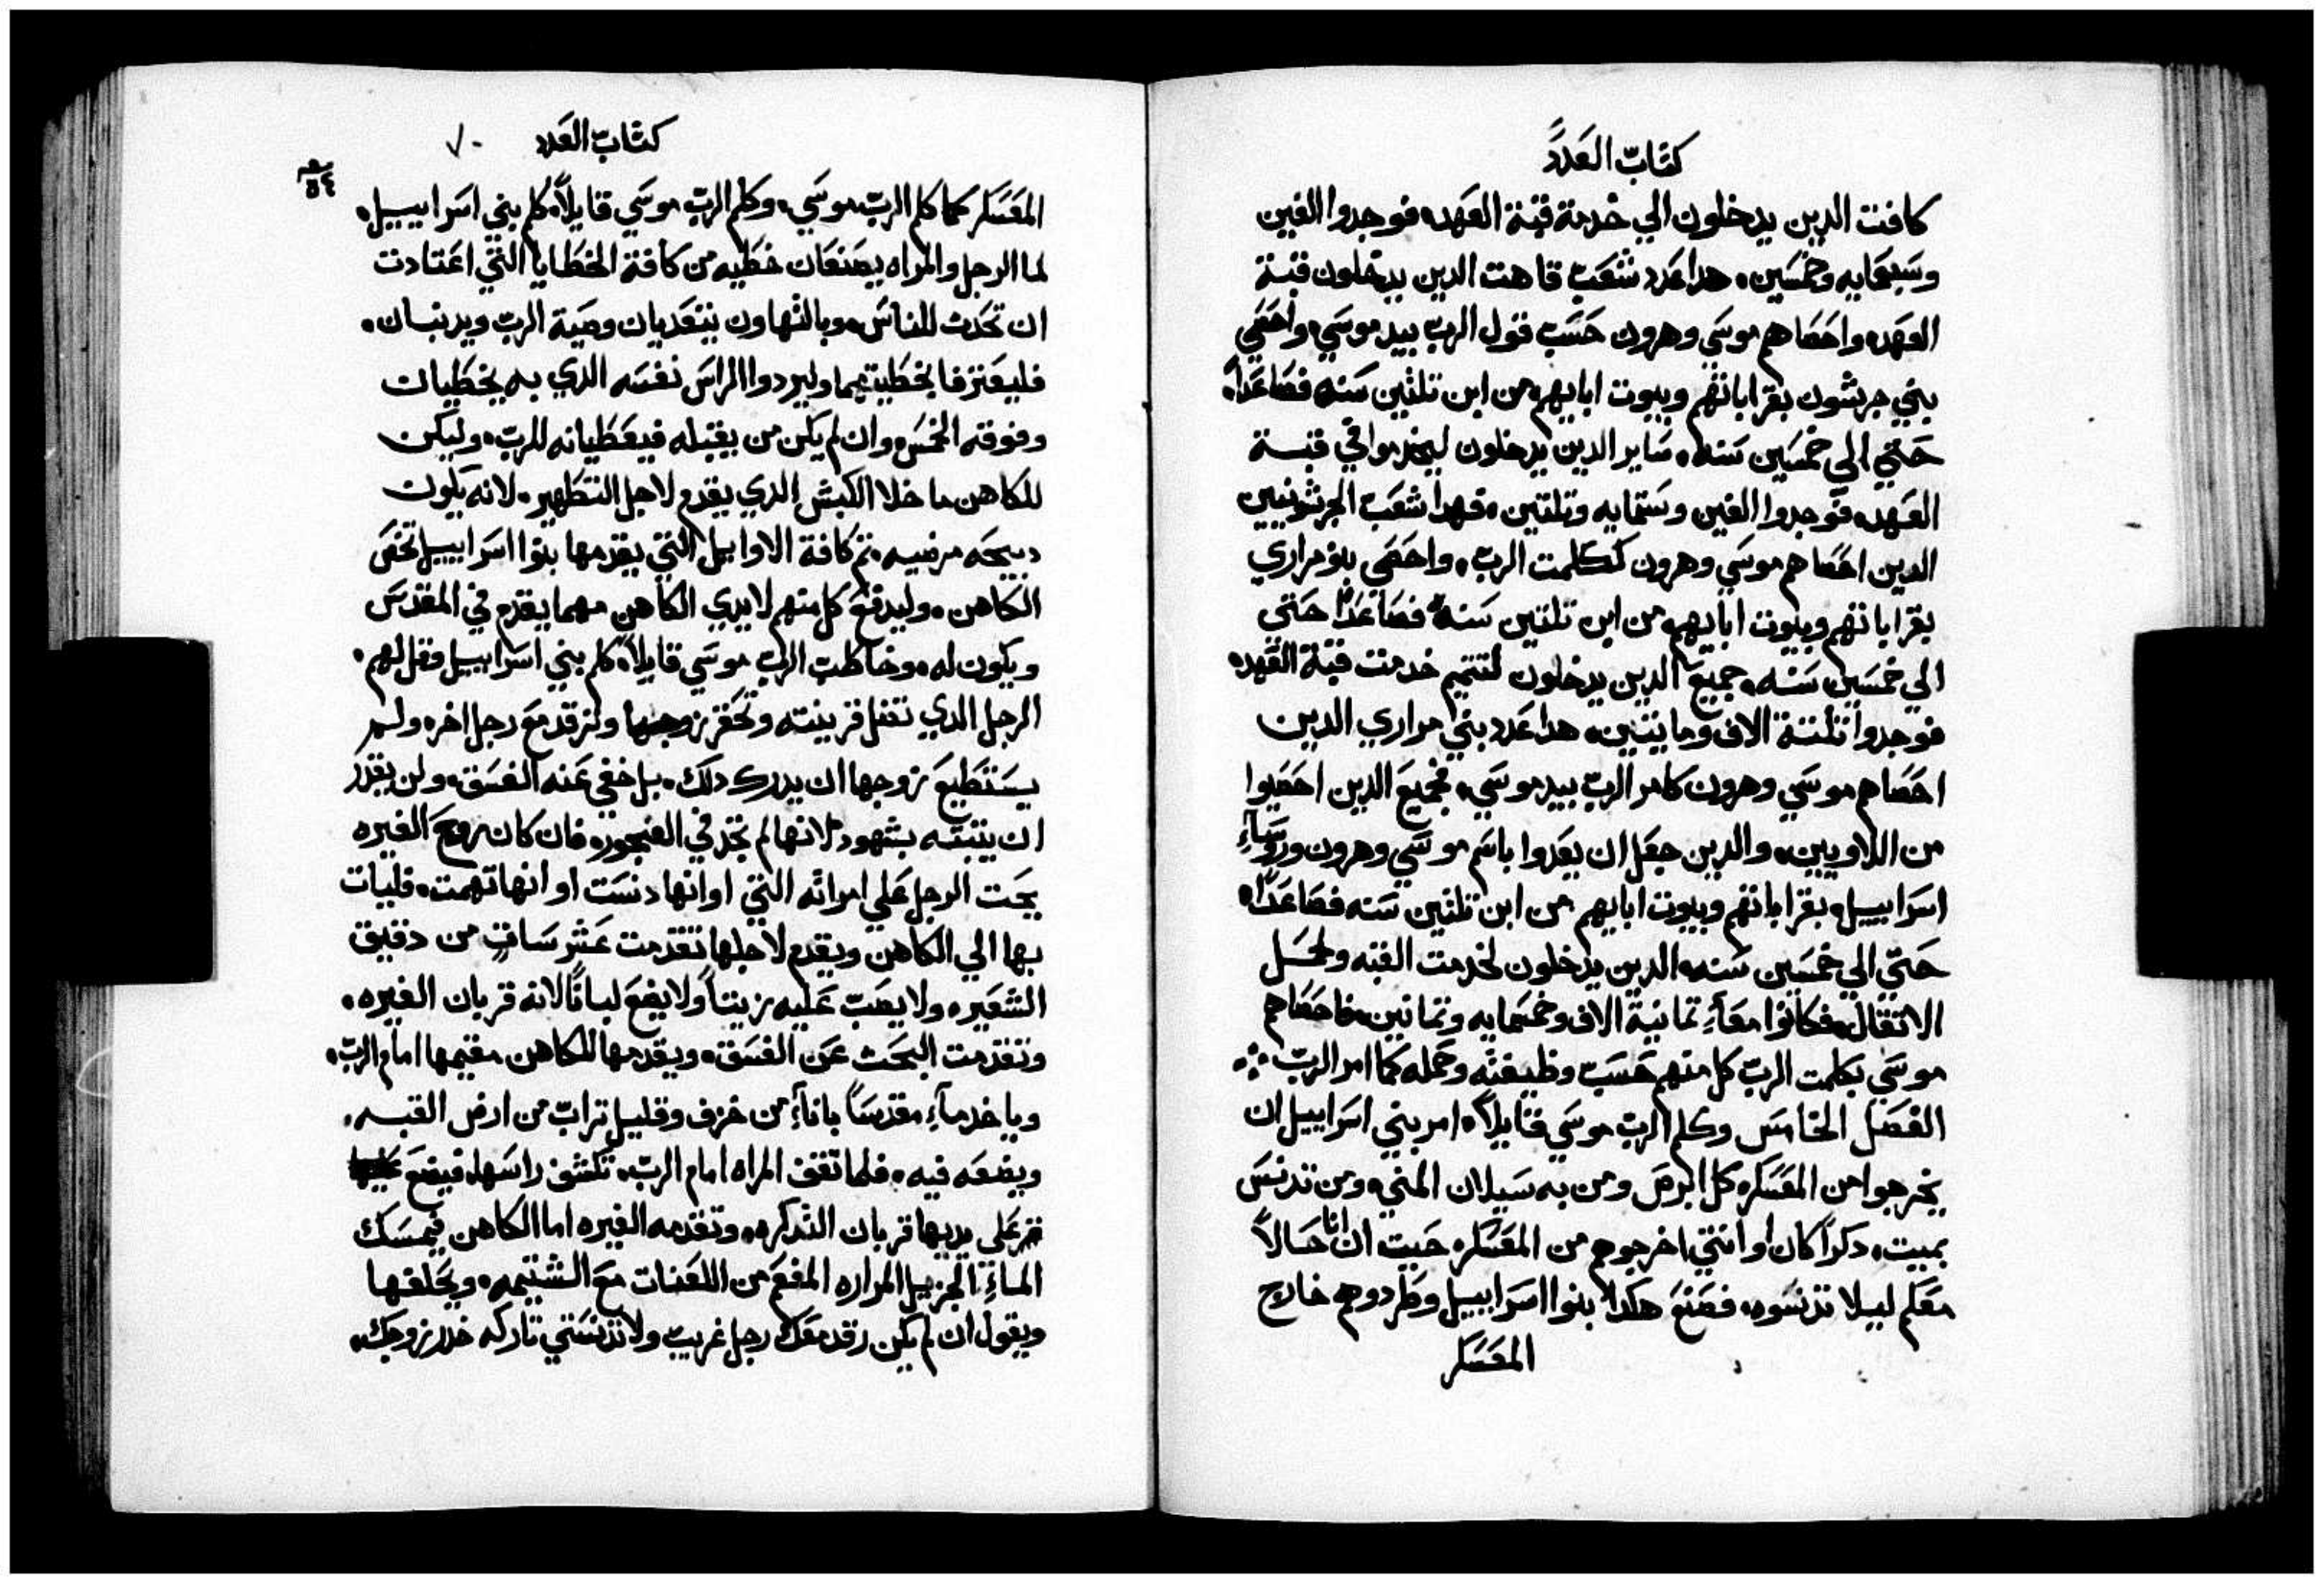 كتاب العدد
كافت الدين يدخلون الي خدمة قبة العهد، فوجدوا الفين
وسبعمايه وخمسين، هدا عدد شعب قاهت الدين يدخلون قبة
العهد، واحصاهم موسي وهرون حسب قول الرب بيد موسي، واحصي
بني جرشون بقراباتهم وبيوت ابايهم، من ابن تلتين سنه فصاعداً،
حتي الي خمسين سنه، ساير الدين يدخلون ليخدموا في قبة
العهد، فوجدوا الفين وستمايه وتلتين، فهدا شعب الجرشونيين
الدين احصاهم موسي وهرون ككلمت الرب، واحصي بنو مراري
بقراباتهم وبيوت ابايهم، من ابن تلتين سنه فصاعداً حتي
الي خمسين سنه، جميع الدين يدخلون لتتميم خدمت قبة العهد،
فوجدوا تلتة الاف ومايتين، هدا عدد بني مراري الدين
احصاهم موسي وهرون كامر الرب بيد موسي، فجميع الدين احصيوا
من اللاويين، والدين جعل ان يعدوا باسم موسي وهرون وروساءِ
اسراييل، بقراباتهم وبيوت ابايهم من ابن تلتين سنه فصاعداً،
حتي الي خمسين سنه، الدين يدخلون لخدمت القبه ولحمل
الاتقال، فكانوا معاً، تمانية الاف وخمسمايه وتمانين، فاحصاهم
موسي بكلمت الرب كل منهم حسب وظيفته وحمله كما امر الرب
الفصل الخامس وكلم الرب موسي قايلاً، امر بني اسراييل ان
يخرجوا من المعسكر، كل ابرص ومن به سيلان المني، ومن تدنس
بميت، دكراً كان او انتي، اخرجوهم من المعسكر، حيت ان انا حالاً
معكم ليلا تدنسوه، فصنع هكدا بنوا اسراييل وطردوهم خارج
المعسكر
كتاب العدد ٧٠
المعسكر كما كلم الرب موسي، وكلم الرب موسي قايلاً، كلم بني اسراييل،
لما الرجل والمراه يصنعان خطيه من كافة الخطايا التي اعتادت
ان تحدث للناس، وبالتهاون يتعديان وصية الرب ويدنبان،
فليعترفا بخطيتهما وليردوا الراس نفسه الدي به يخطيان
وفوقه الخمس، وان لم يكن من يقبله فيعطيانه للرب، وليكن
للكاهن ما خلا الكبش الدي يقدم لاجل التطهير، لانه يكون
دبيحه مرضيه، تم كافة الاوايل التي يقدمها بنوا اسراييل تخص
الكاهن، وليدفع كل منهم لايدي الكاهن مهما يقدم في المقدس
ويكون له، وخاطب الرب موسي قايلاً، كلم بني اسراييل وقل لهم،
الرجل الدي تغفل قرينته وتحقر زوجها وترقد مع رجل اخر، ولم
يستطيع زوجها ان يدرك دلك، بل خفي عنه الفسق، ولن يقدر
ان يتبته بشهود، لانها لم تجد في الفجور، فان كان روح الغيره
يحت الرجل علي امراته التي اوانها دنست او انها تهمت، فليات
بها الي الكاهن ويقدم لاجلها تقدمت عشر ساتٍ من دقيق
الشعير، ولا يصب عليه زيتاً ولا يضع لباناً لانه قربان الغيره،
وتقدمت البحت عن الفسق، ويقدمها للكاهن مقيمها امام الرب،
وياخد ماءِ مقدساً باناءِ من خزف وقليل تراب من ارض القبه،
ويضعه فيه، فلما تقف المراه امام الرب، تكشف راسها، فيضع
علي يديها قربان التدكره، وتقدمه الغيره اما الكاهن فيمسك
الماءِ الجزيل المراره المفعم من اللعنات مع الشتيمه، ويحلفها
ويقول ان لم يكن رقد معك رجل غريب ولا تدنستي تاركه خدر زوجك،